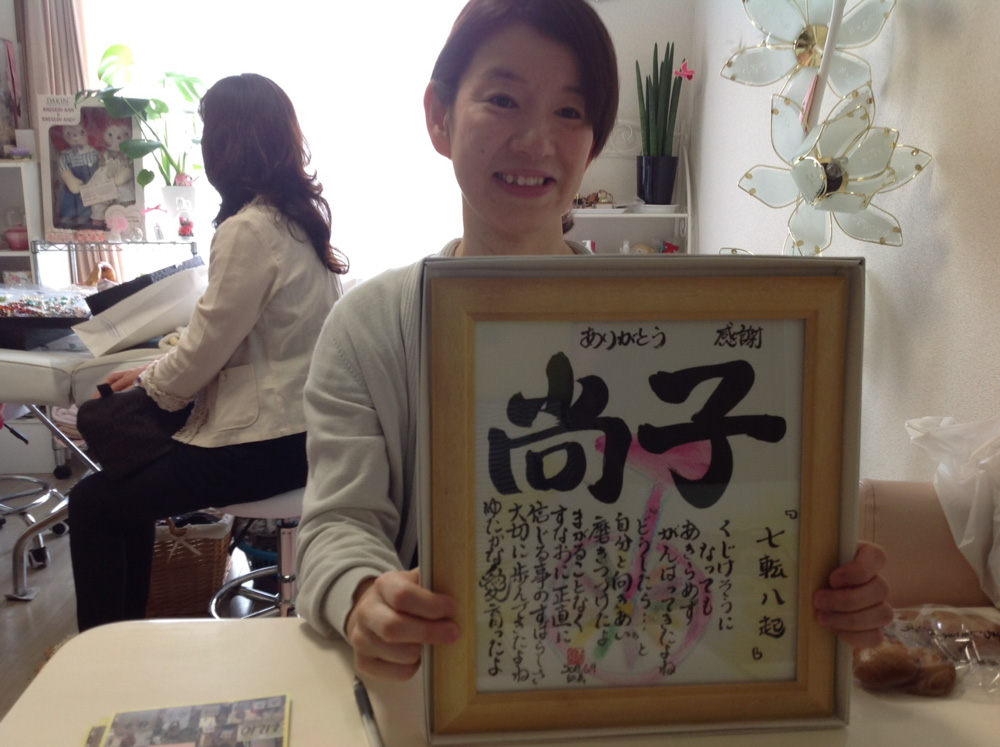 ありがとう 感謝
尚子
『七転八起』
くじけそうに
なっても
あきらめず
がんばってきたよね
どうしたら…と
自分と向きあい
磨きつづけたよ
まがることなく
すなおに正直に
信じる事のすばらしさ
大切に歩んできたよね
ゆたかな愛育ったよ
DAKIN
RAGGEDY ANN
&
RAGGEDY ANDY